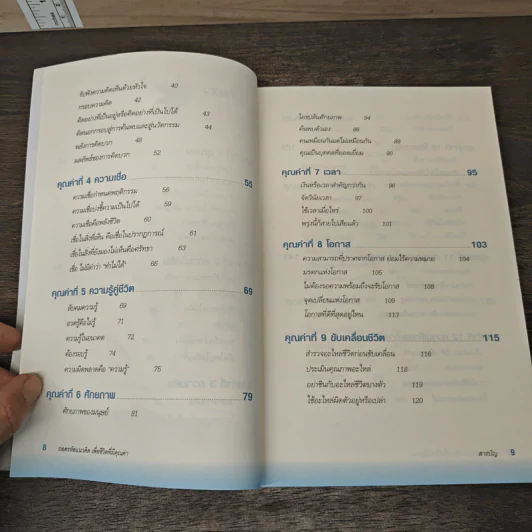 จับพลังความคิดเห็นด้วยหัวใจ 40
กรอบความคิด 42
คิดอย่างที่เป็นอยู่หรือคิดอย่างที่เป็นไปได้ 43
คิดนอกกรอบสู่การค้นพบและสู่นวัตกรรม 44
พลังการคิดบวก 48
ผลลัพธ์ของการคิดบวก 52
คุณค่าที่ 4 ความเชื่อ 55
ความเชื่อกำหนดพฤติกรรม 56
ความเชื่อบ่งชี้ความเป็นไปได้ 59
ความเชื่อคือพลังชีวิต 60
เชื่อในสิ่งที่เห็น คือเชื่อในปรากฏการณ์ 61
เชื่อในสิ่งที่ยังมองไม่เห็นคือศรัทธา 63
เชื่อ ไม่มีคำว่า "ทำไม่ได้" 66
คุณค่าที่ 5 ความรู้คู่ชีวิต 69
ลับคมความรู้ 69
อวดรู้คือไม่รู้ 71
ความรู้ในอนาคต 72
ต้องรอบรู้ 74
ความผิดพลาดคือ "ความรู้" 75
คุณค่าที่ 6 ศักยภาพ 79
ศักยภาพของมนุษย์ 81
8 ถอดรหัสแนวคิด เพื่อชีวิตที่มีคุณค่า
ใครปล้นศักยภาพ 84
ค้นพบตัวเอง 86
คนเหมือนกันแต่ไม่เหมือนกัน 88
คุณเป็นบุคคลที่ยอดเยี่ยม 90
คุณค่าที่ 7 เวลา 95
เงินหรือเวลาสำคัญกว่ากัน 96
จัดวินัยเวลา 97
ใช้เวลาเมื่อไหร่ 100
พรุ่งนี้ก็สายไปเสียแล้ว 101
คุณค่าที่ 8 โอกาส 103
ความสามารถที่ปราศจากโอกาส ย่อมไร้ความหมาย 104
มรดกแห่งโอกาส 105
ไม่ต้องรอความพร้อมถึงจะขับโอกาส 108
จุดเปลี่ยนแห่งโอกาส 109
โอกาสที่ดีที่สุดอยู่ไหน 113
คุณค่าที่ 9 ขับเคลื่อนชีวิต 115
สำรวจอะไหล่ชีวิตก่อนขับเคลื่อน 116
ประเมินคุณภาพอะไหล่ 118
อย่าชินกับอะไหล่ชีวิตบางตัว 119
ใช้อะไหล่ผิดตัวอยู่หรือเปล่า 120
สารบัญ 9